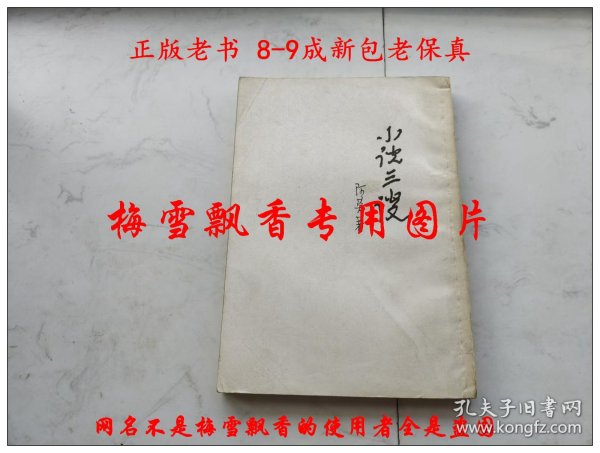 正版老书 8-9成新包老保真
小说三谈
阿英著
梅雪飘香专用图片
孔夫子旧书网
www.kongfz.com
网名不是梅雪飘香的使用者全是盗图